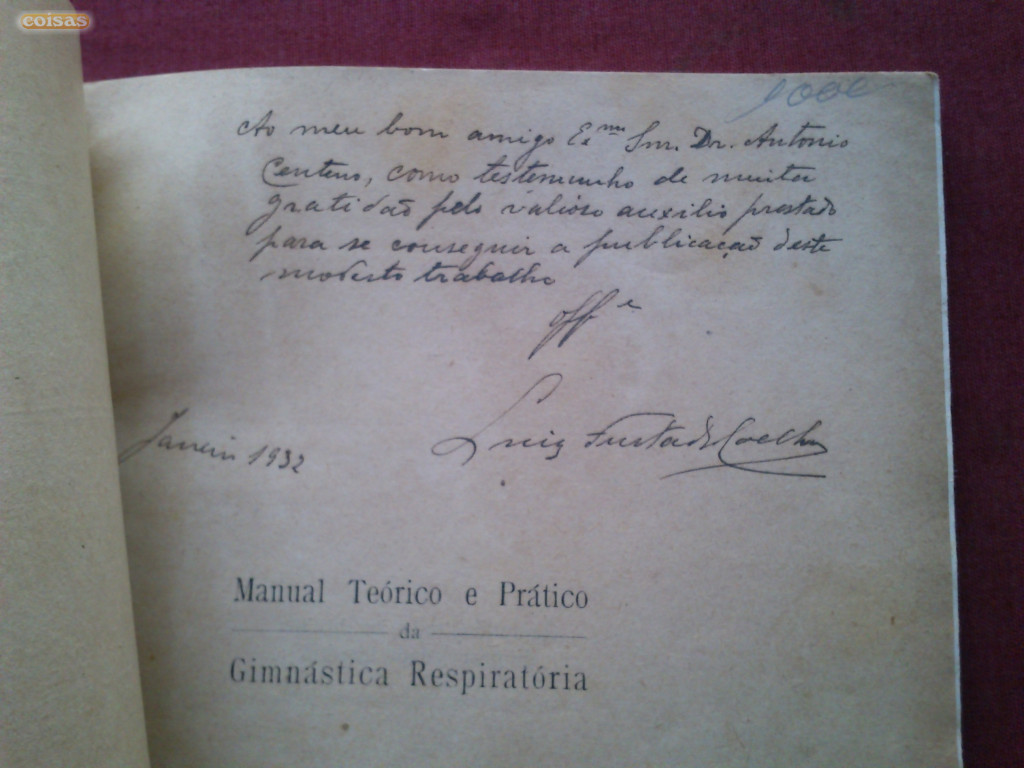 coisas
Ao meu bom amigo Ex.mo Snr. Dr. Antonio
Centeno, como testemunho de muita
gratidão pelo valioso auxilio prestado
para se conseguir a publicação deste
modesto trabalho
off.e
Janeiro 1932
Luiz Furtado Coelho
Manual Teórico e Prático
da
Gimnástica Respiratória